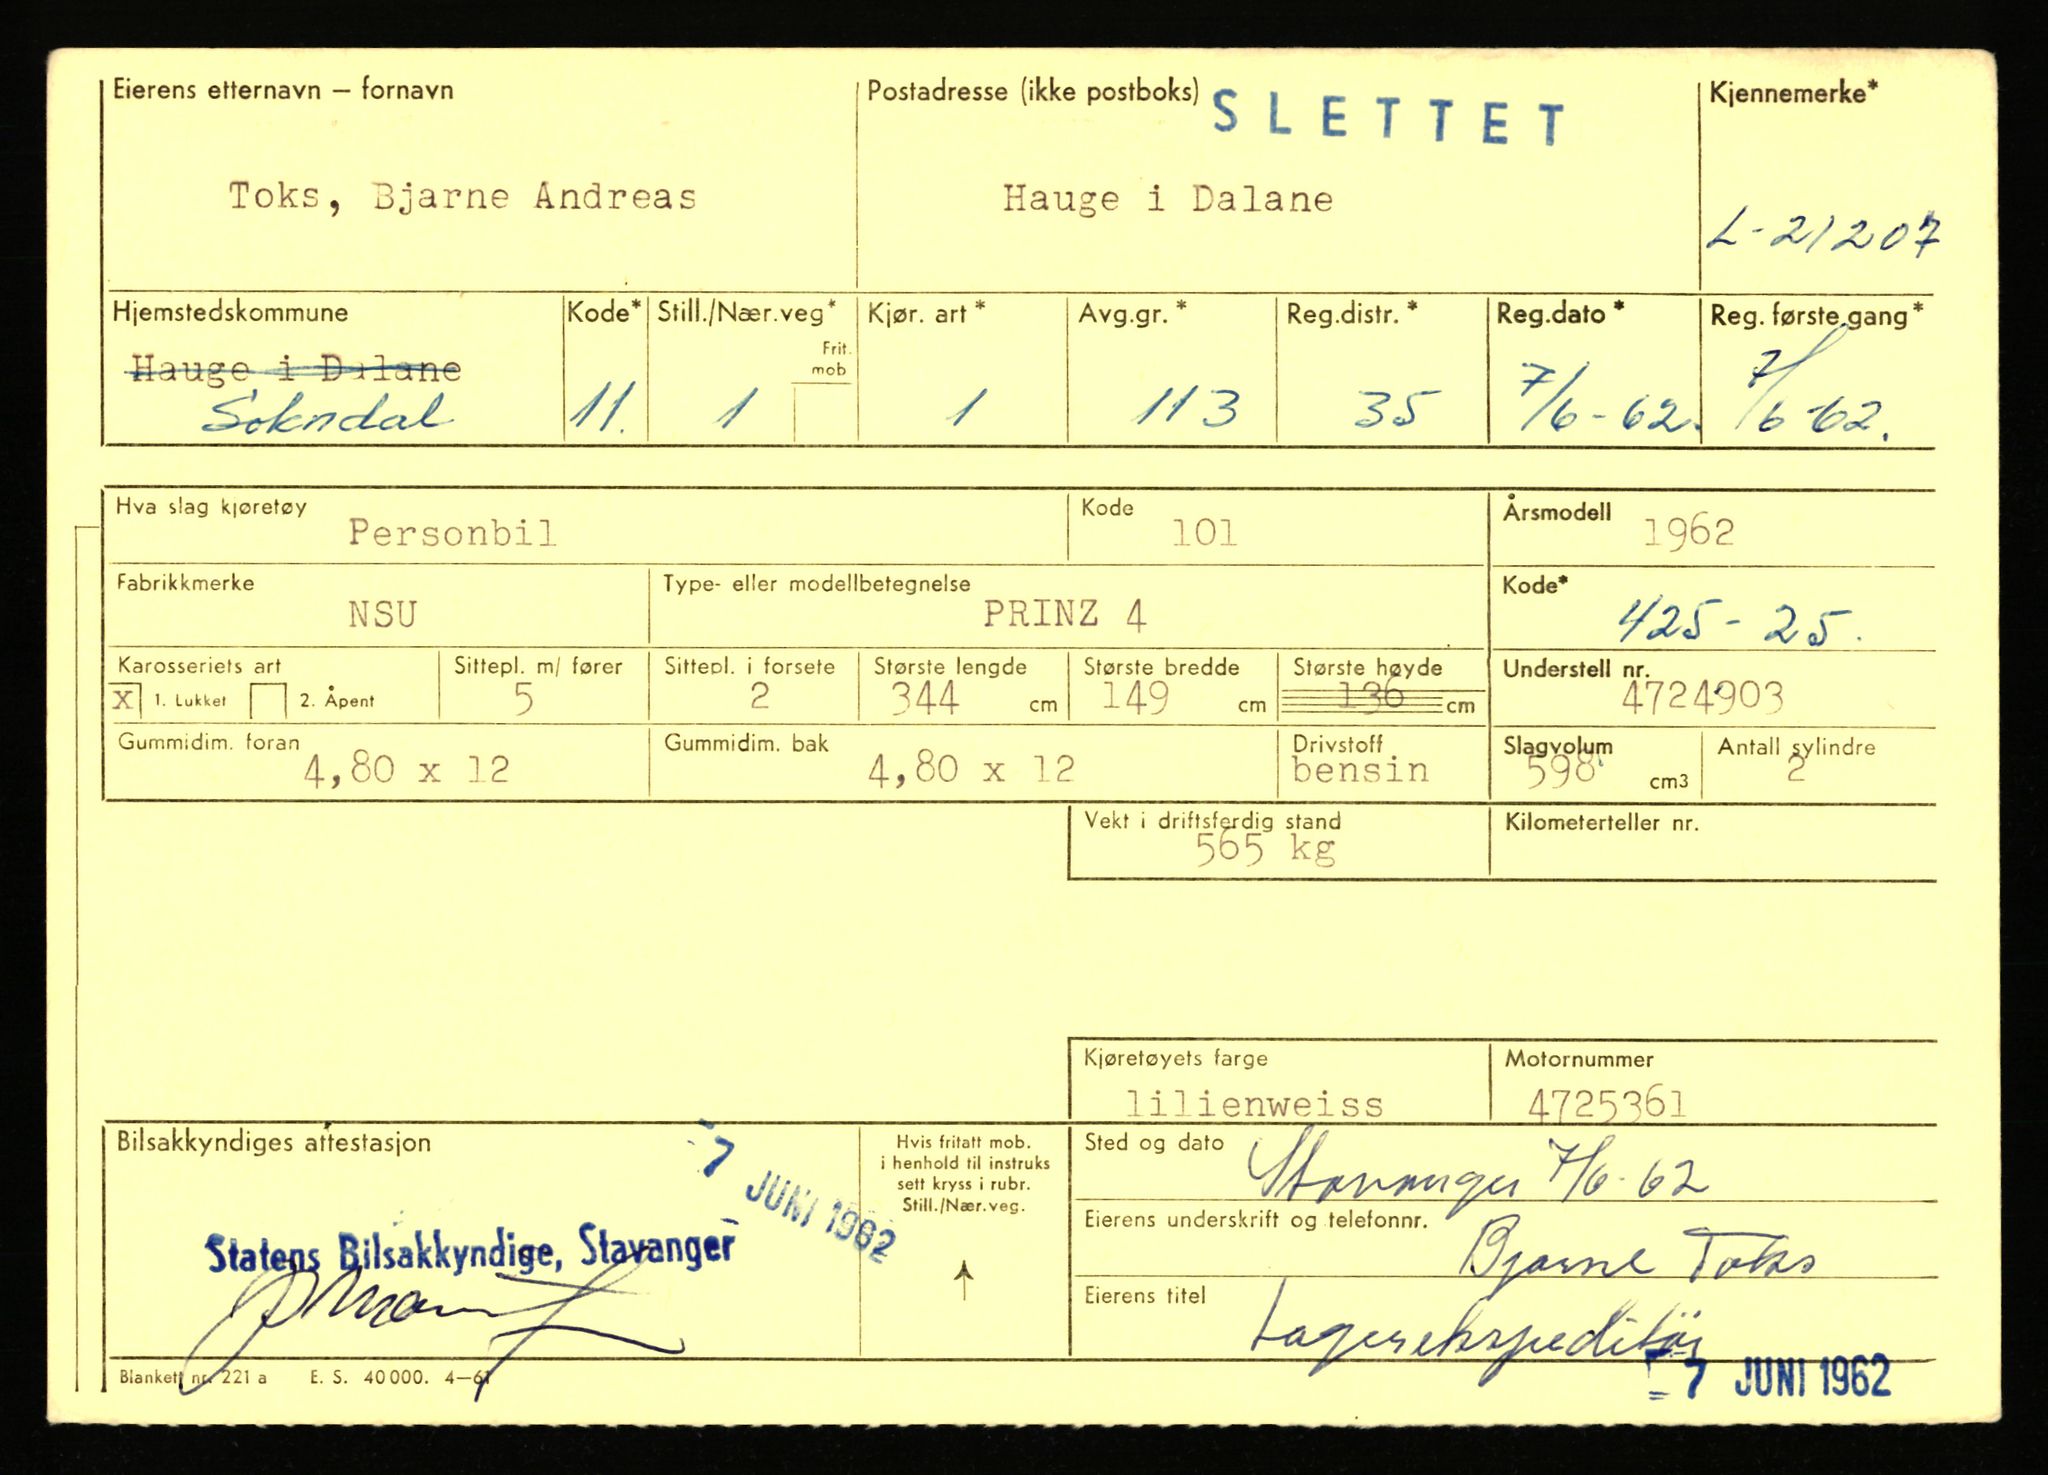 Eierens etternavn – fornavn Postadresse (ikke postboks) SLETTET Kjennemerke*
Toks, Bjarne Andreas Hauge i Dalane L-21207
Hjemstedskommune Kode* Still./Nær.veg* Kjør. art* Avg.gr.* Reg.distr.* Reg.dato* Reg. første gang*
Frit. mob
Hauge i Dalane
Sokndal 11. 1 1 113 35 7/6-62. 7/6-62.
Hva slag kjøretøy Personbil Kode 101 Årsmodell 1962
Fabrikkmerke NSU Type- eller modellbetegnelse PRINZ 4 Kode* 425-25.
Karosseriets art Sittepl. m/ fører Sittepl. i forsete Største lengde Største bredde Største høyde Understell nr.
X 1. Lukket 2. Åpent 5 2 344 cm 149 cm 136 cm 4724903
Gummidim. foran Gummidim. bak Drivstoff Slagvolum Antall sylindre
4,80 x 12 4,80 x 12 bensin 598 cm3 2
Vekt i driftsferdig stand Kilometerteller nr.
565 kg
Kjøretøyets farge Motornummer
lilienweiss 4725361
Bilsakkyndiges attestasjon Hvis fritatt mob. i henhold til instruks sett kryss i rubr. Still./Nær.veg. Sted og dato
-7 JUNI 1962 Stavanger 7/6-62
Statens Bilsakkyndige, Stavanger Eierens underskrift og telefonnr.
Bjarne Toks
Eierens titel
Lagerekspeditör
Blankett nr. 221 a E. S. 40000. 4–61 -7 JUNI 1962